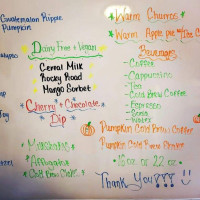 Guatemalan Ripple
Pumpkin
Dairy Free + Vegan
Cereal Milk
Rocky Road
Mango Sorbet
Cherry + Chocolate
Dip
Milkshakes
Affogatos
Warm Churros
Warm Apple pie w/ Ice C
Beverages
- Coffee
- Cappuccino
- Tea
- Cold Brew Coffee
- Espresso
- Soda
- Water
Pumpkin Cold Brew Coffee
Pumpkin Cold Brew Shake
16 oz or 22 oz
Thank You!!!